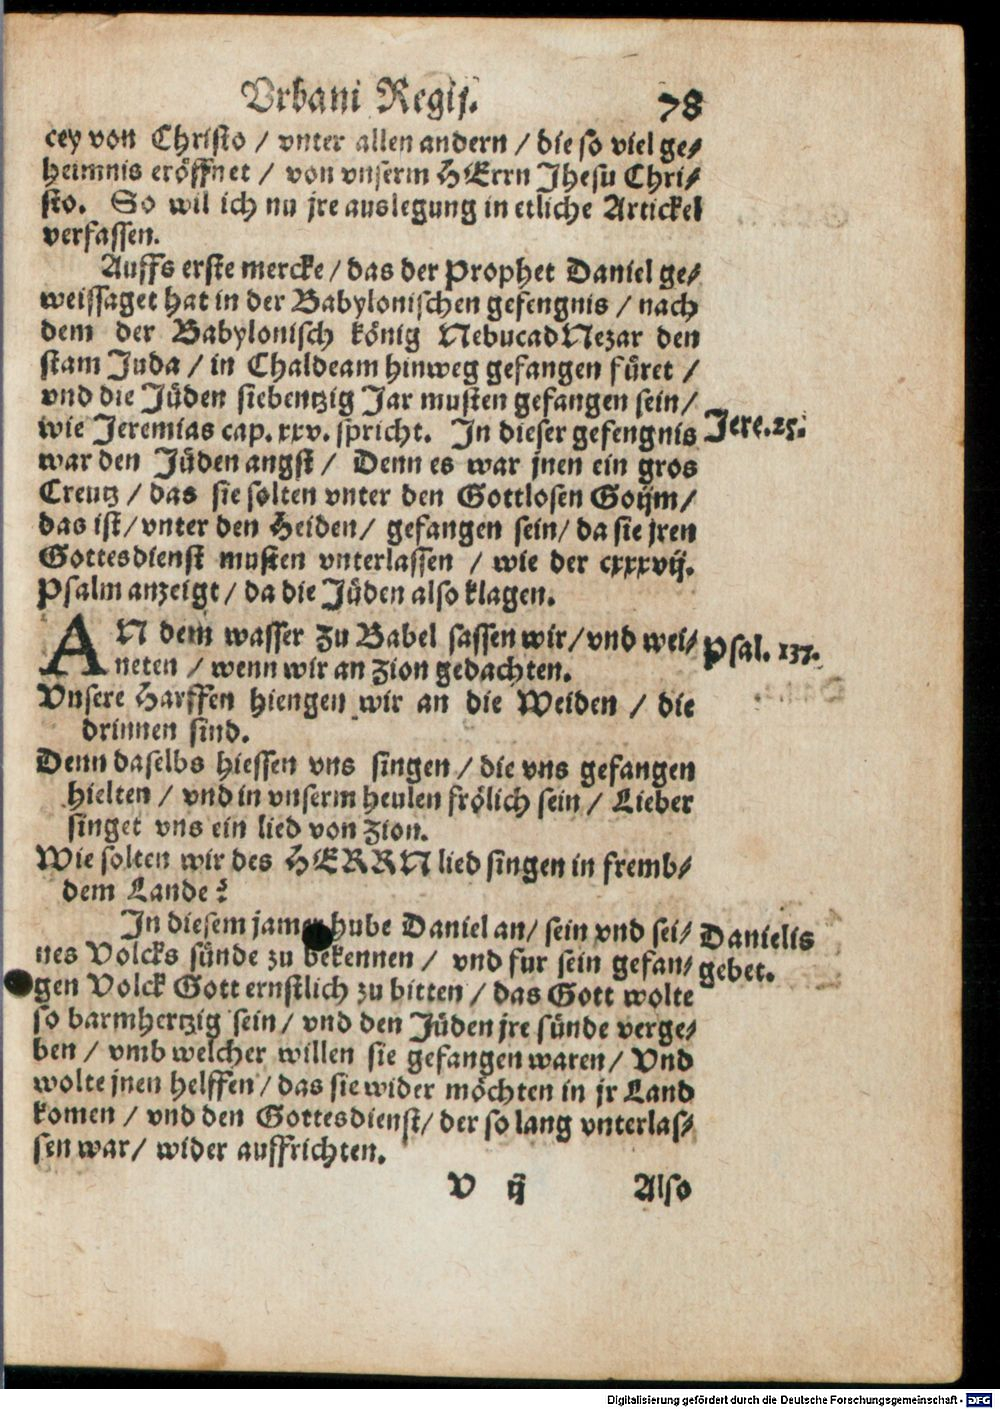 Vrbani Regij. 78
cey von Christo / vnter allen andern / die so viel ge⸗
heimnis eröffnet / von vnserm HErrn Jhesu Chri⸗
sto. So wil ich nu jre auslegung in etliche Artickel
verfassen.
Auffs erste mercke / das der Prophet Daniel ge⸗
weissaget hat in der Babylonischen gefengnis / nach
dem der Babylonisch könig NebucadNezar den
stam Juda / in Chaldeam hinweg gefangen füret /
vnd die Jüden siebentzig Jar musten gefangen sein /
wie Jeremias cap. xxv. spricht. In dieser gefengnis
Jere. 25.
war den Jüden angst / Denn es war jnen ein gros
Creutz / das sie solten vnter den Gottlosen Goijm /
das ist / vnter den Heiden / gefangen sein / da sie jren
Gottesdienst musten vnterlassen / wie der cxxxvij.
Psalm anzeigt / da die Jüden also klagen.
AN dem wasser zu Babel sassen wir / vnd wei⸗
Psal. 137.
neten / wenn wir an Zion gedachten.
Vnsere Harffen hiengen wir an die Weiden / die
drinnen sind.
Denn daselbs hiessen vns singen / die vns gefangen
hielten / vnd in vnserm heulen frölich sein / Lieber
singet vns ein lied von Zion.
Wie solten wir des HERRN lied singen in fremb⸗
dem Lande?
In diesem jamer hube Daniel an / sein vnd sei⸗
Danielis
nes Volcks sünde zu bekennen / vnd fur sein gefan⸗
gebet.
gen Volck Gott ernstlich zu bitten / das Gott wolte
so barmhertzig sein / vnd den Jüden jre sünde verge⸗
ben / vmb welcher willen sie gefangen waren / Vnd
wolte jnen helffen / das sie wider möchten in jr Land
komen / vnd den Gottesdienst / der so lang vnterlas⸗
sen war / wider auffrichten.
V ij Also
Digitalisierung gefördert durch die Deutsche Forschungsgemeinschaft - DFG